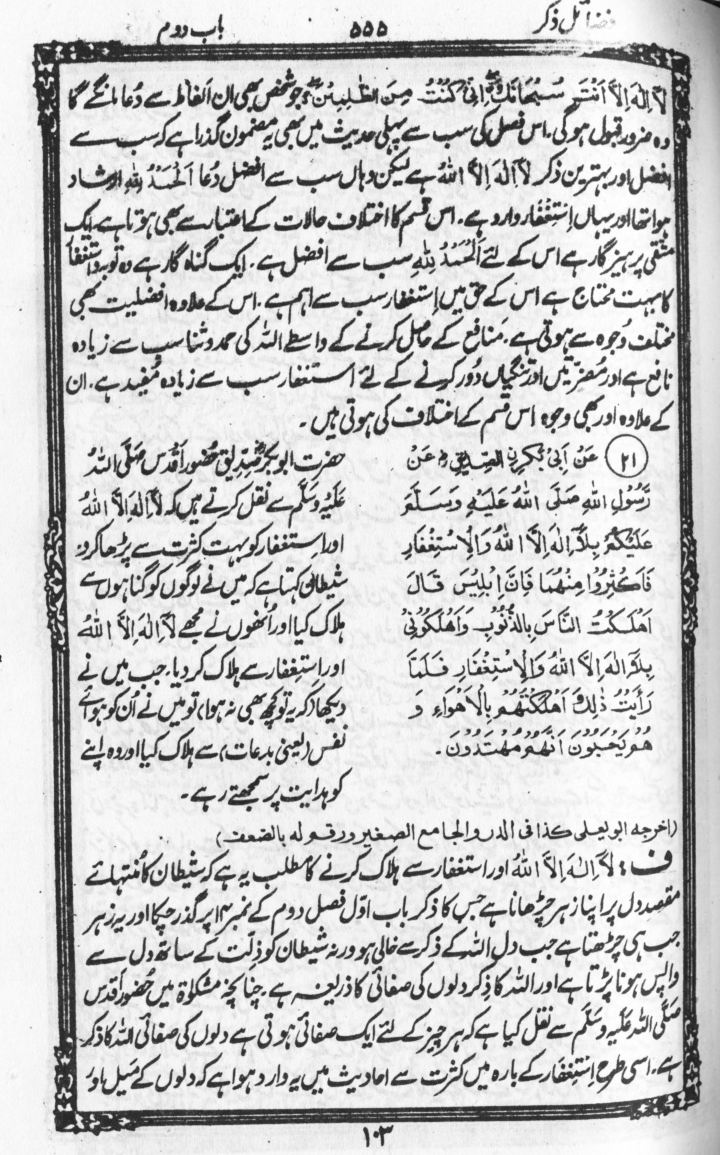 فضائل ذکر
۵۵۵
باب دوم
لَآ اِلٰهَ اِلَّآ اَنْتَ سُبْحَانَكَ اِنِّیْ كُنْتُ مِنَ الظّٰلِمِیْنَ جو شخص بھی ان الفاظ سے دُعا مانگے گا
وہ ضرور قبول ہوگی۔ اس فصل کی سب سے پہلی حدیث میں بھی یہ مضمون گذرا ہے کہ سب سے
افضل اور بہترین ذکر لَآ اِلٰهَ اِلَّا اللهُ ہے لیکن وہاں سب سے افضل دُعا اَلْحَمْدُ لِلّٰهِ ارشاد
ہوا تھا اور یہاں اِستغفار وارد ہے۔ اس قسم کا اختلاف حالات کے اعتبار سے بھی ہوتا ہے۔ ایک
متقی پرہیزگار ہے اس کے لئے اَلْحَمْدُ لِلّٰهِ سب سے افضل ہے۔ ایک گناہ گار ہے وہ توبہ واستغفار
کا بہت محتاج ہے اس کے حق میں اِستغفار سب سے اہم ہے۔ اس کے علاوہ افضلیت بھی
مختلف وُجوہ سے ہوتی ہے۔ مَنافع کے حاصل کرنے کے واسطے اللہ کی حمد وثنا سب سے زیادہ
نافع ہے اور مُضرتیں اور تنگیاں دُور کرنے کے لئے استغفار سب سے زیادہ مُفید ہے۔ ان
کے علاوہ اور بھی وجوہ اس قسم کے اختلاف کی ہوتی ہیں۔
(۲۱) عَنْ اَبِیْ بَكْرِنِ الصِّدِّیْقِ ؓ عَنْ
رَّسُوْلِ اللهِ صَلَّی اللهُ عَلَیْهِ وَسَلَّمَ
عَلَیْكُمْ بِلَآ اِلٰهَ اِلَّا اللهُ وَالْاِسْتِغْفَارِ
فَاَكْثِرُوْا مِنْهُمَا فَاِنَّ اِبْلِیْسَ قَالَ
اَهْلَكْتُ النَّاسَ بِالذُّنُوْبِ وَاَهْلَكُوْنِیْ
بِلَآ اِلٰهَ اِلَّا اللهُ وَالْاِسْتِغْفَارِ فَلَمَّا
رَاَیْتُ ذٰلِكَ اَهْلَكْتُهُمْ بِالْاَهْوَاءِ وَ
هُمْ یَحْسَبُوْنَ اَنَّهُمْ مُهْتَدُوْنَ۔
حضرت ابوبکر صدیق ؓ حضور اَقدس صَلَّی اللهُ
عَلَیْهِ وَسَلَّم سے نقل کرتے ہیں کہ لَآ اِلٰهَ اِلَّا اللهُ
اور اِستغفار کو بہت کثرت سے پڑھا کرو،
شیطان کہتا ہے کہ میں نے لوگوں کو گناہوں سے
ہلاک کیا اور اُنھوں نے مجھے لَآ اِلٰهَ اِلَّا اللهُ
اور اِستغفار سے ہلاک کر دیا۔ جب میں نے
دیکھا (کہ یہ تو کچھ بھی نہ ہوا) تو میں نے اُن کو ہوائے
نفس (یعنی بدعات) سے ہلاک کیا اور وہ اپنے
کو ہدایت پر سمجھتے رہے۔
(اخرجه ابو یعلی كذا فی الدر والجامع الصغیر ورقم له بالضعف)
ف: لَآ اِلٰهَ اِلَّا اللهُ اور استغفار سے ہلاک کرنے کا مطلب یہ ہے کہ شیطان کا مُنتہائے
مقصد دل پر اپنا زہر چڑھانا ہے جس کا ذکر باب اوّل فصل دوم کے نمبر ۱۴ پر گذر چکا اور یہ زہر
جب ہی چڑھتا ہے جب دل اللہ کے ذکر سے خالی ہو ورنہ شیطان کو ذلّت کے ساتھ دل سے
واپس ہونا پڑتا ہے اور اللہ کا ذِکر دلوں کی صفائی کا ذریعہ ہے چنانچہ مشکوٰۃ میں حُضور اَقدس
صَلَّی اللهُ عَلَیْهِ وَسَلَّم سے نقل کیا ہے کہ ہر چیز کے لئے ایک صفائی ہوتی ہے دلوں کی صفائی اللہ کا ذکر
ہے۔ اسی طرح اِستغفار کے بارہ میں کثرت سے احادیث میں یہ وارد ہوا ہے کہ دلوں کے میل اور
۱۰۳